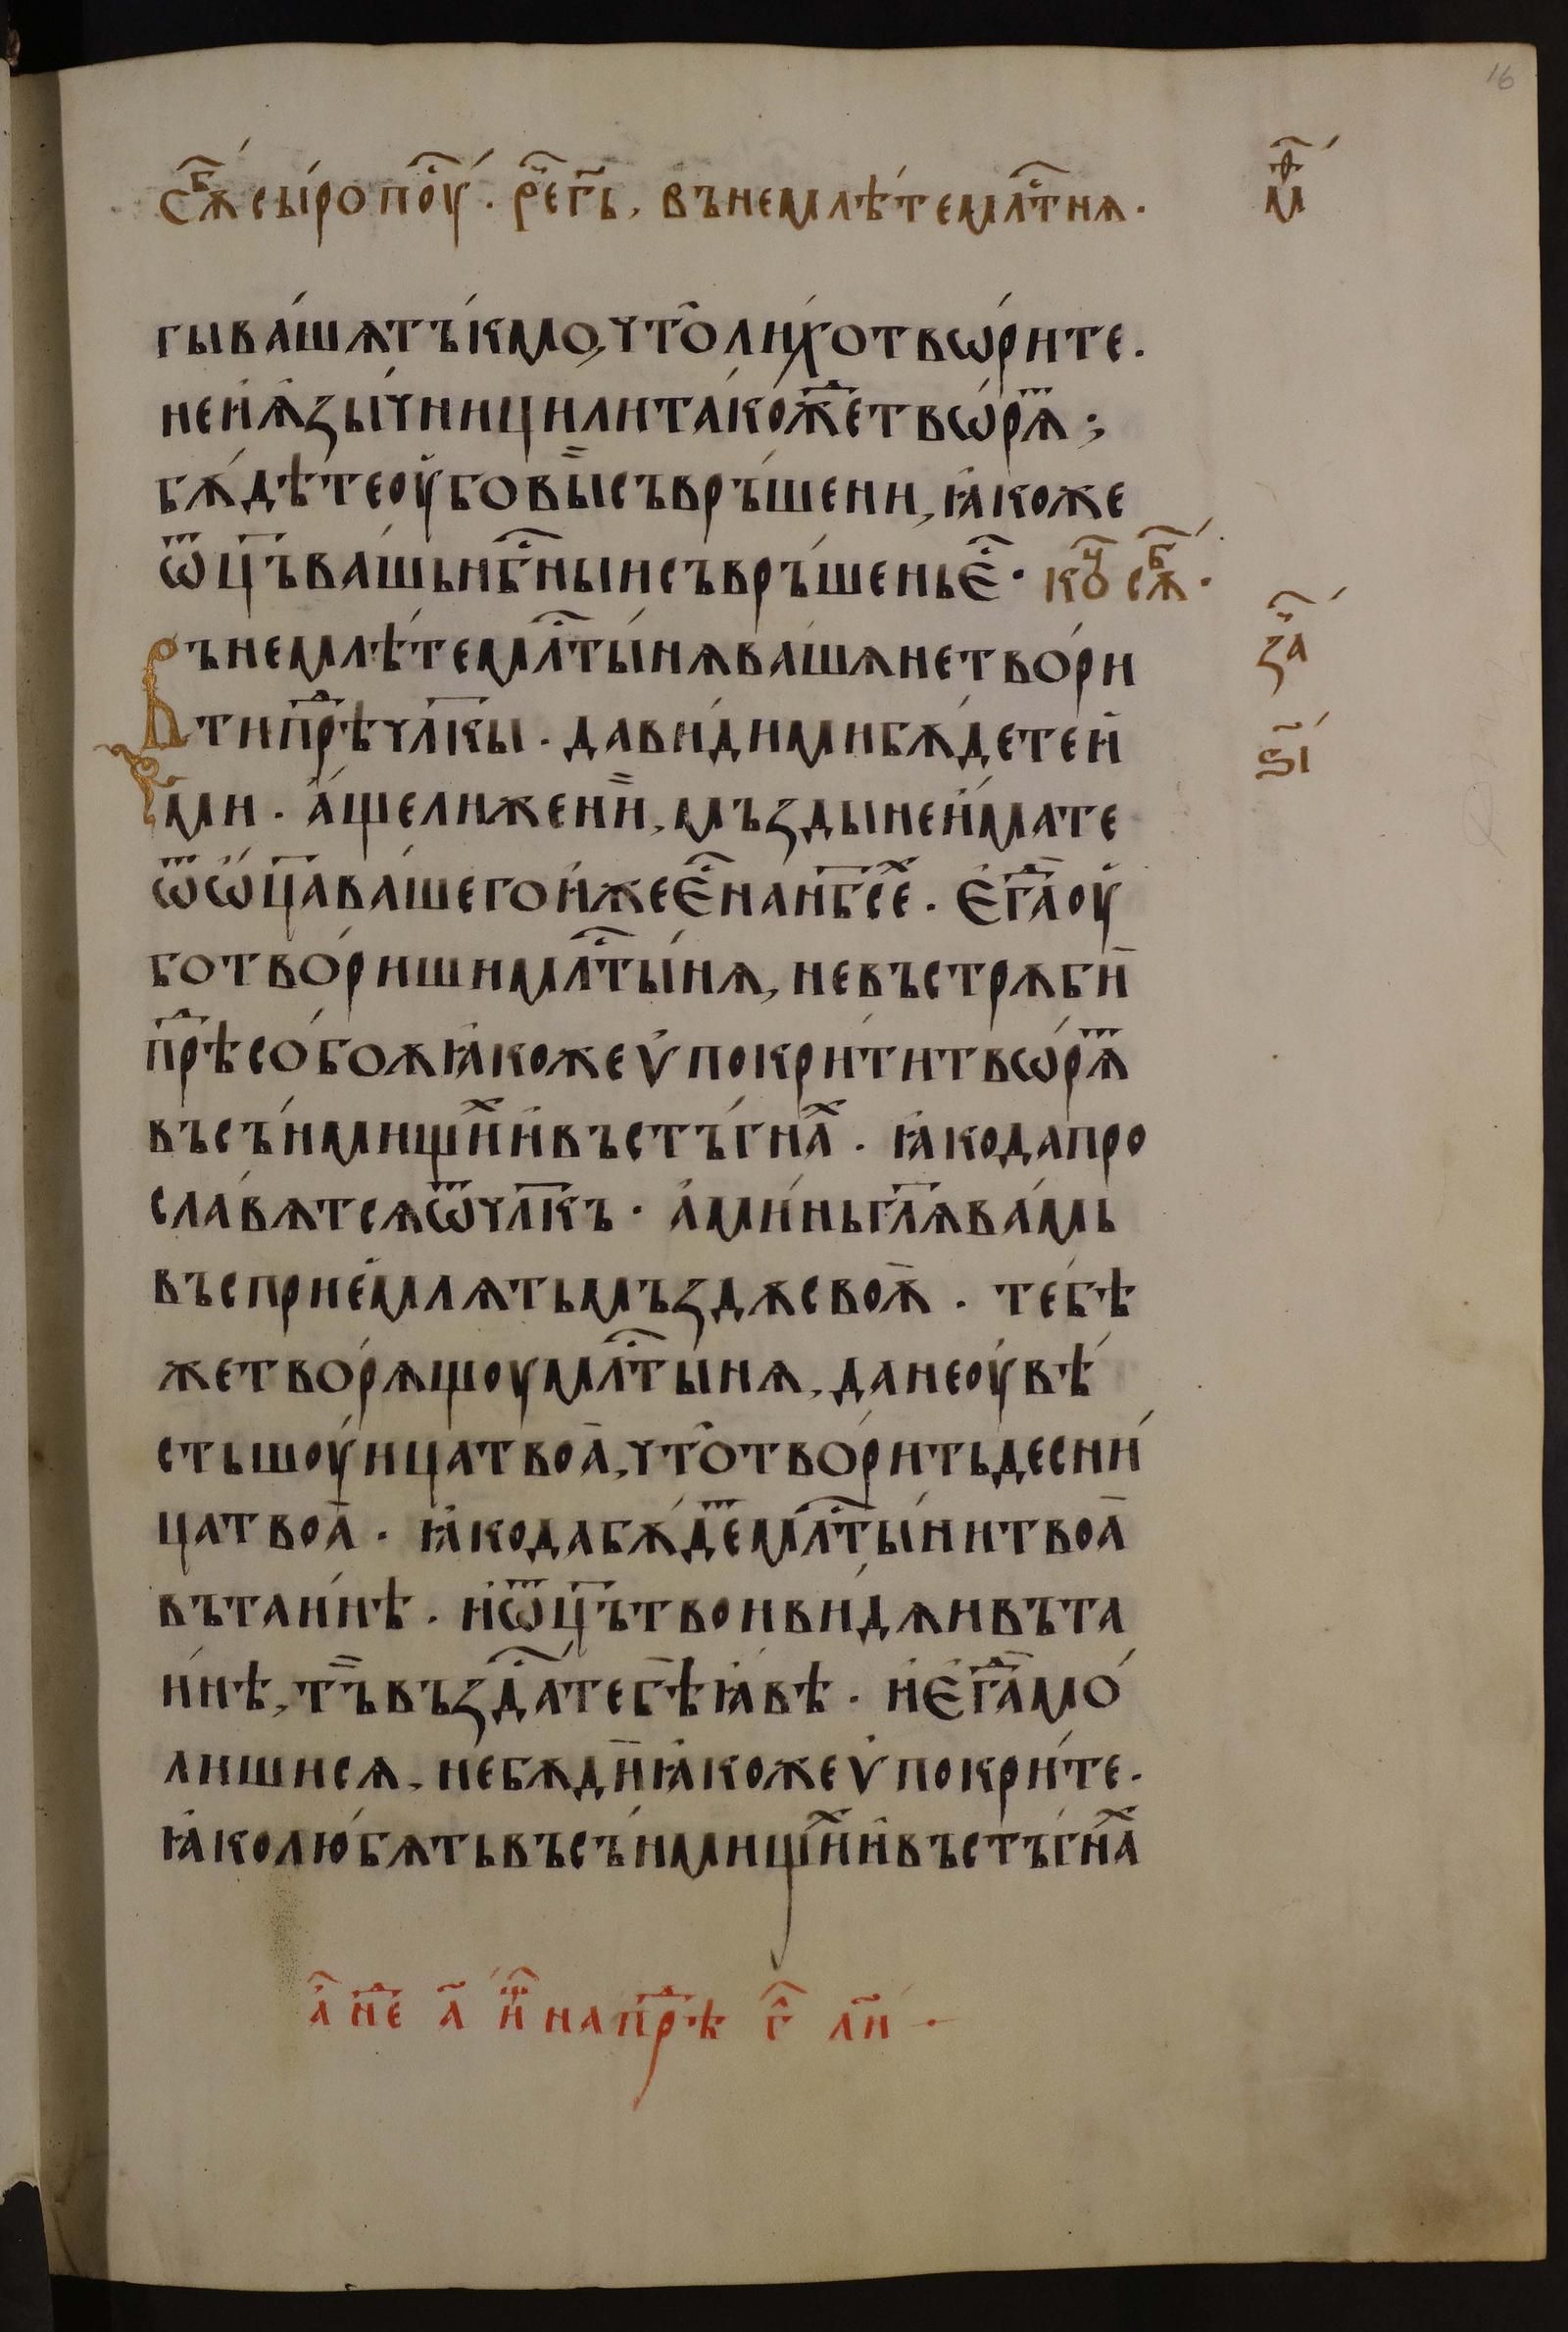 16
сѫⷠ҇ сыропоу҇. реⷱ҇ гь, вънемлѣтемлⷭ҇тнѧ.
мⷴ҇
гыва́шѧтъ́кмо, что̑ли́хотвѡ́рите.
неи҆ѧ҆зы́чницилита́кожⷣетвѡ́рѧⷮ;
бѫ́дѣтеоу҆бовы̏съвръ́шени, ꙗ҆коже
ѿц҃ъва́шьнбⷭ҇ныисъвръ́шеньеⷭ҇. коⷱ҇ сѫⷠ҇.
Вънемлѣ́темлⷭ҇ты́нѧва́шѧнетво́ри
за҃
типрѣⷣчл҃кы. дави́димибѫ́детеи҆
ѕ҃і
ми. а́щелиженѝ, мъздынеи҆́мате
ѿѡ҆ц҃ава́шегои҆жееⷭ҇нан҃бсеⷯ. е҆гаⷣоу҆
ботво́ришимлⷭ҇ты́нѧ, невъстрѫби̅
прѣⷣсо́боѫꙗ҆кожеѵ҆покри́титвѡ́рѧⷮ
въсъ́нмищиⷯи҆въстъ́гнаⷯ. ꙗ҆кодапро
сла́вѧтсѧѿчл҃къ. а҆ми́ньгл҃ѧва́мь
въсприе́млѧтьмъздѫсвоѫ̅. те́бѣ
жетво́рѧщоумлⷭ҇ты́нѧ, данеоу҆вѣ́
стьшоу́ицатвоа̅, что̑тво́ритьдесни́
цатвоа̅. ꙗ҆кодабѫ́деⷮмлⷭ҇ты́нитвоа̅
вътаи́нѣ. и҆ѿц҃ътвоиви́дѧивъта
и́нѣ, тъ̏въздаⷭ҇тебѣꙗ҆вѣ. и҆е҆гаⷣмо́
лишисѧ, небѫди̅ꙗ҆кожеѵ҆покри́те.
ꙗ҆колю́бѧтьвъсъ́нмищиⷯи҆въстъ́гнаⷯ
а҆ неⷣ а҃ иⷳ҇ напрѣⷣ г҃ ли̅.